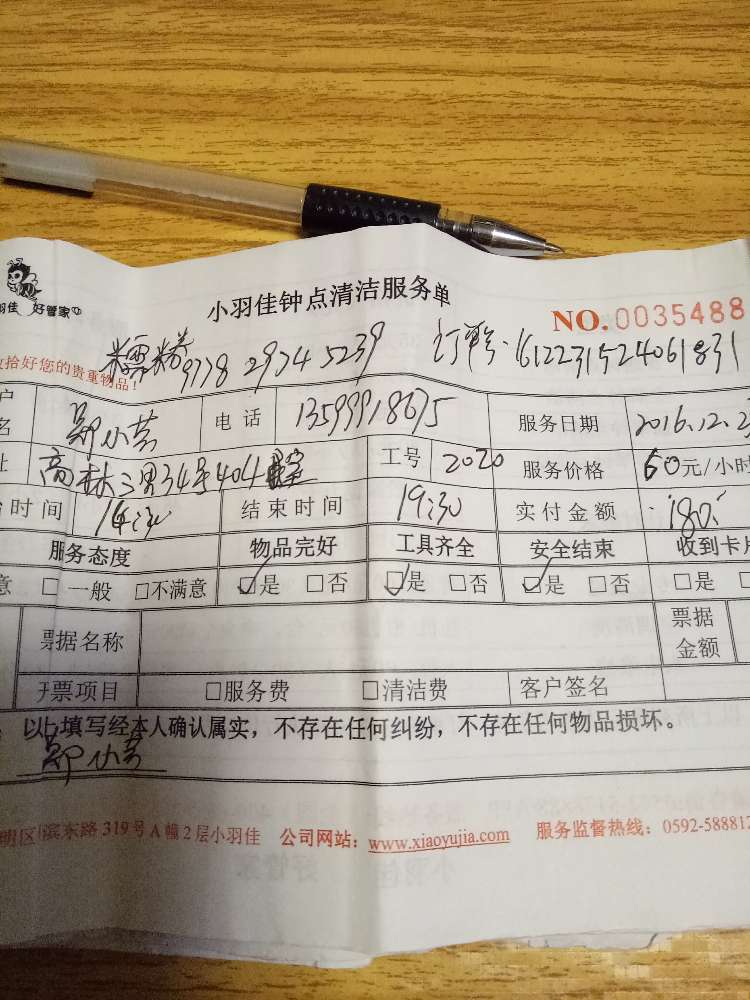 小羽佳钟点清洁服务单
羽佳 好管家
NO.0035488
收拾好您的贵重物品！ 糯米券 9778 2974 5239 订单号：1612231524061831
户名 郑小芸 电话 13599918675 服务日期 2016.12.2
址 高林三里34号404 工号 2020 服务价格 60元/小时
时间 16:30 结束时间 19:30 实付金额 180.
服务态度 物品完好 工具齐全 安全结束 收到卡片
意 □一般 □不满意 ☑是 □否 ☑是 □否 ☑是 □否 □是
票据名称 票据金额
开票项目 □服务费 □清洁费 客户签名
以上填写经本人确认属实，不存在任何纠纷，不存在任何物品损坏。
郑小芸
明区湖滨东路319号A幢2层小羽佳 公司网站：www.xiaoyujia.com 服务监督热线：0592-588812